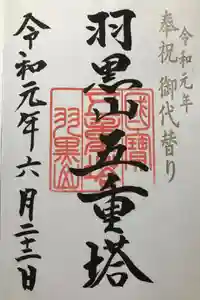 令和元年
奉祝 御代替り
羽黒山五重塔
令和元年六月二十二日